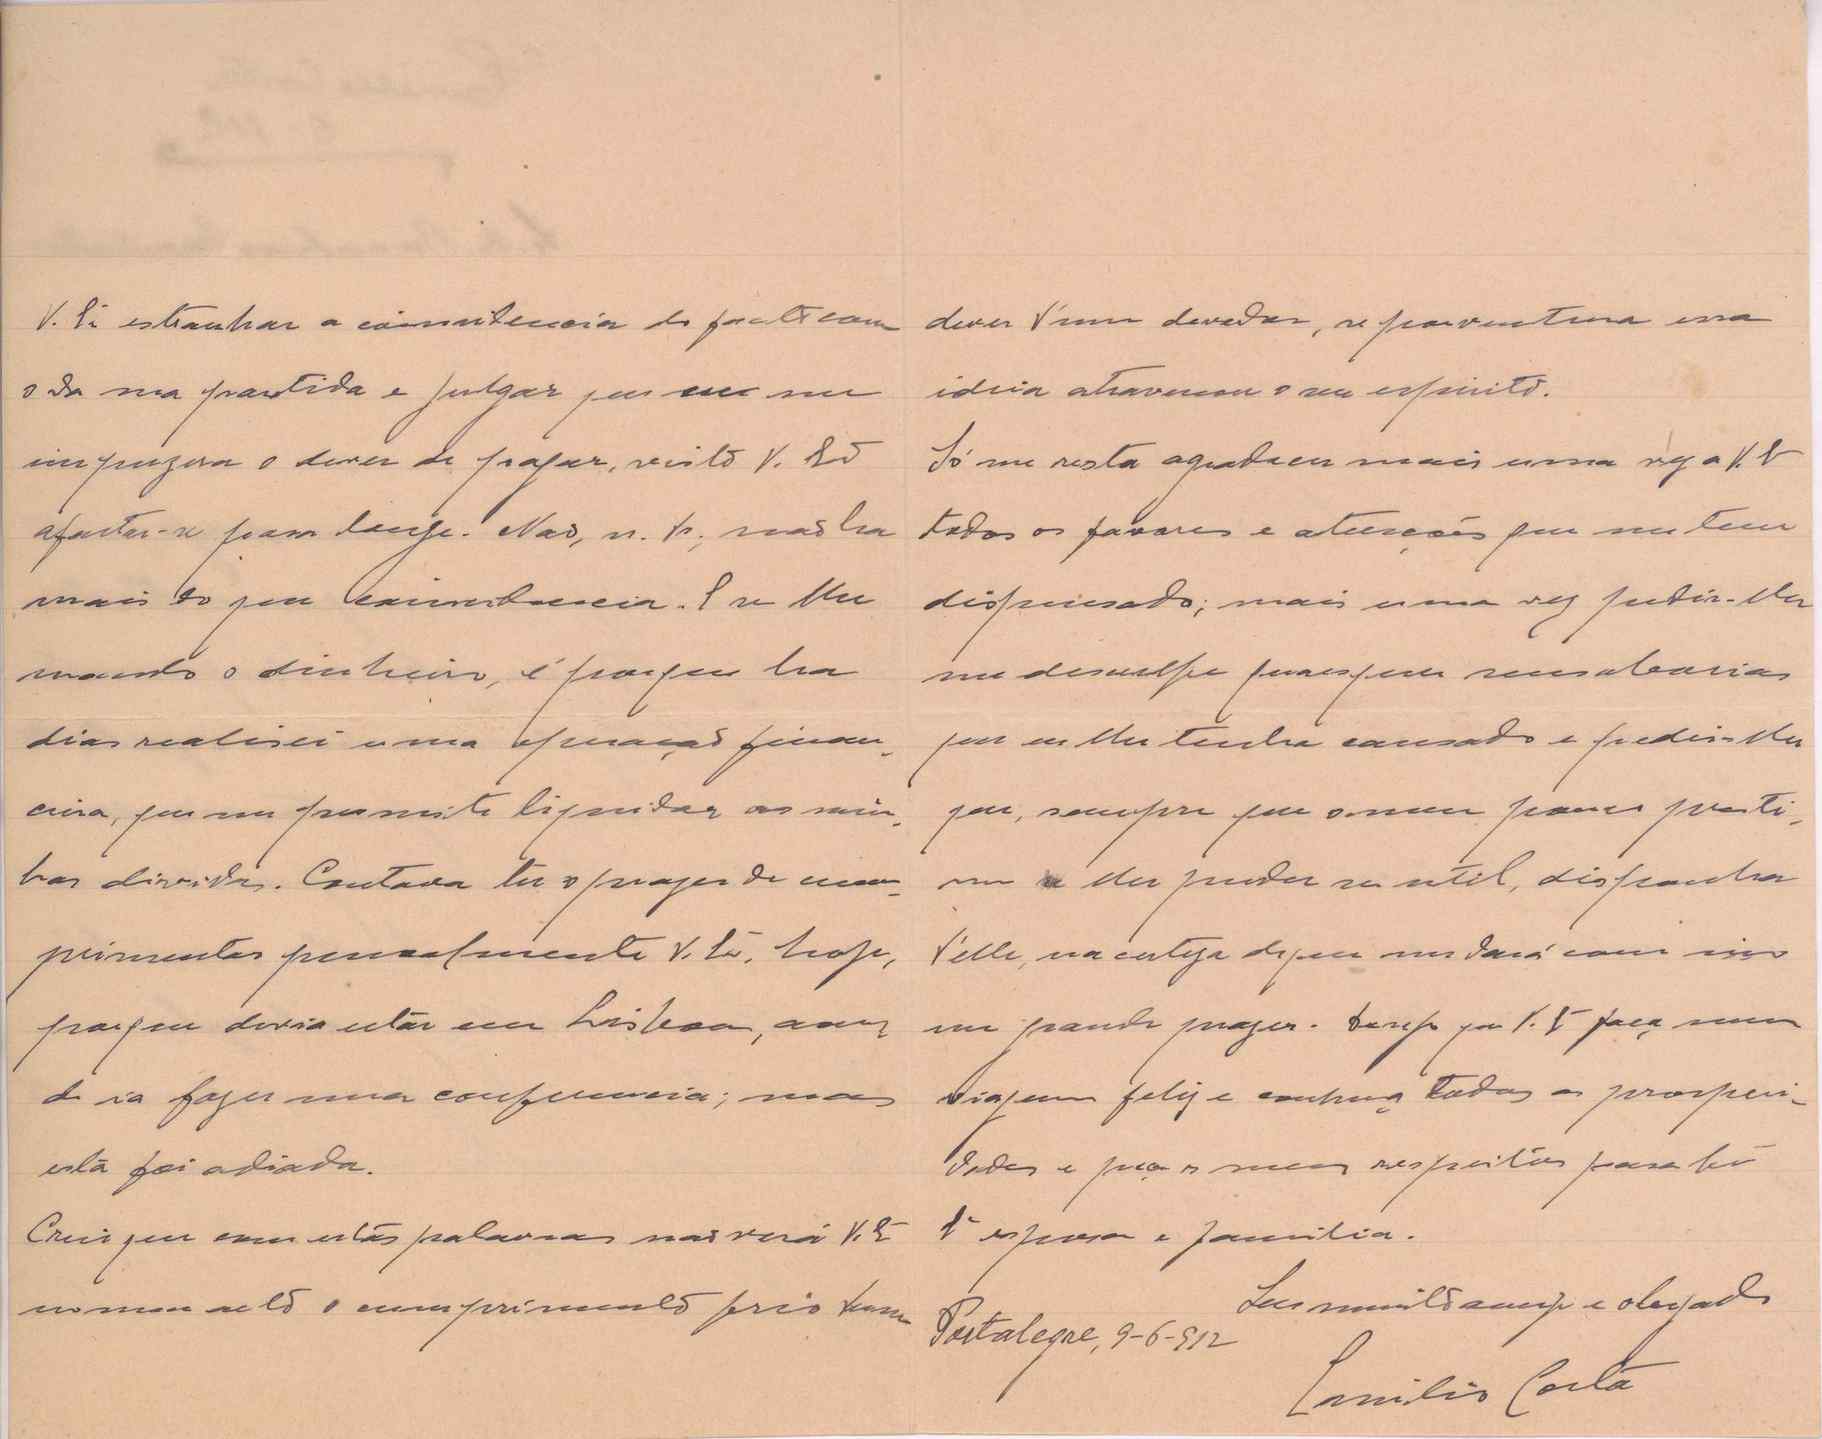 V. Ex estranhar a coincidencia do facto com
o da sua partida e julgar que eu me
impuzera o dever de pagar, visto V. Exª
afastar-se para longe. Não, não ha
mais do que coincidencia. E se lhe
mando o dinheiro, é porque ha
dias realisei uma operação finan-
ceira, que me permite liquidar as mi-
nhas dividas. Contava ter o prazer de cum-
primentar pessoalmente V. Exª, hoje,
porque devia estar em Lisboa, aon-
de ia fazer uma conferencia; mas
esta foi adiada.
Creio que com estas palavras não verá V. Ex
no meu acto o cumprimento frio d'um
dever d'um devedor, se porventura essa
ideia atravessou o seu espirito.
Só me resta agradecer mais uma vez a V. Ex
todos os favores e atenções que me tem
dispensado; mais uma vez pedir-lhe
me desculpe quaesquer sensaborias
que eu lhe tenha causado e pedir-lhe
que, sempre que o meu pouco presti-
mo lhe puder ser util, disponha
d'elle, na certeza de que me dará com isso
um grande prazer. Desejo que V. Ex faça uma
viagem feliz e tenha todas as prosperi-
dades e peço os meus respeitos para
Exª esposa e familia.
Seu muito amigo e obrigado
Portalegre, 9-6-912
Emilio Costa